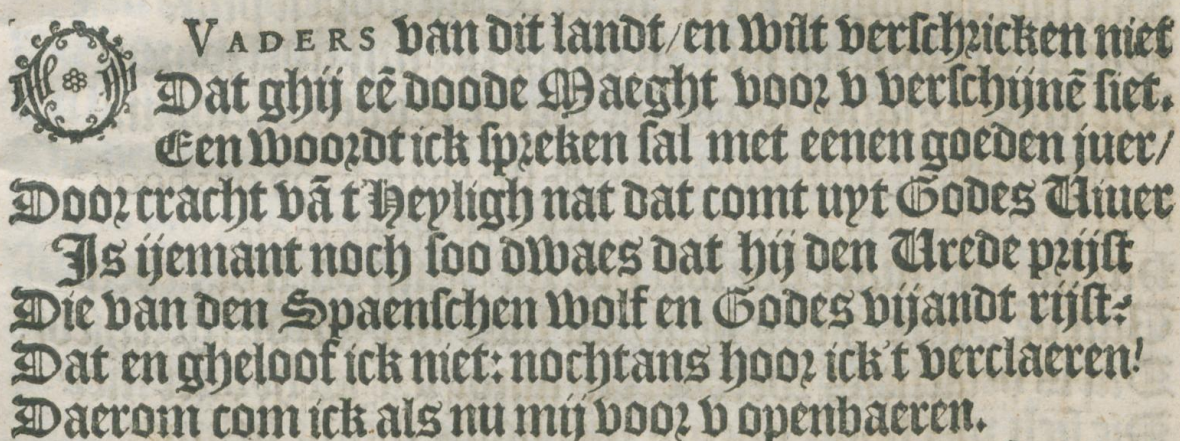 O VADERS van dit landt/en wilt verschricken niet
Dat ghij eẽ doode Maeght voor v verschijnẽ siet.
Een woordt ick spreken sal met eenen goeden juer/
Door cracht vã t Heyligh nat dat comt uyt Godes Viuer
Is ijemant noch soo dwaes dat hij den Vrede prijst
Die van den Spaenschen wolf en Godes vijandt rijst?
Dat en gheloof ick niet: nochtans hoor ick't verclaeren!
Daerom com ick als nu mij voor v openbaeren.